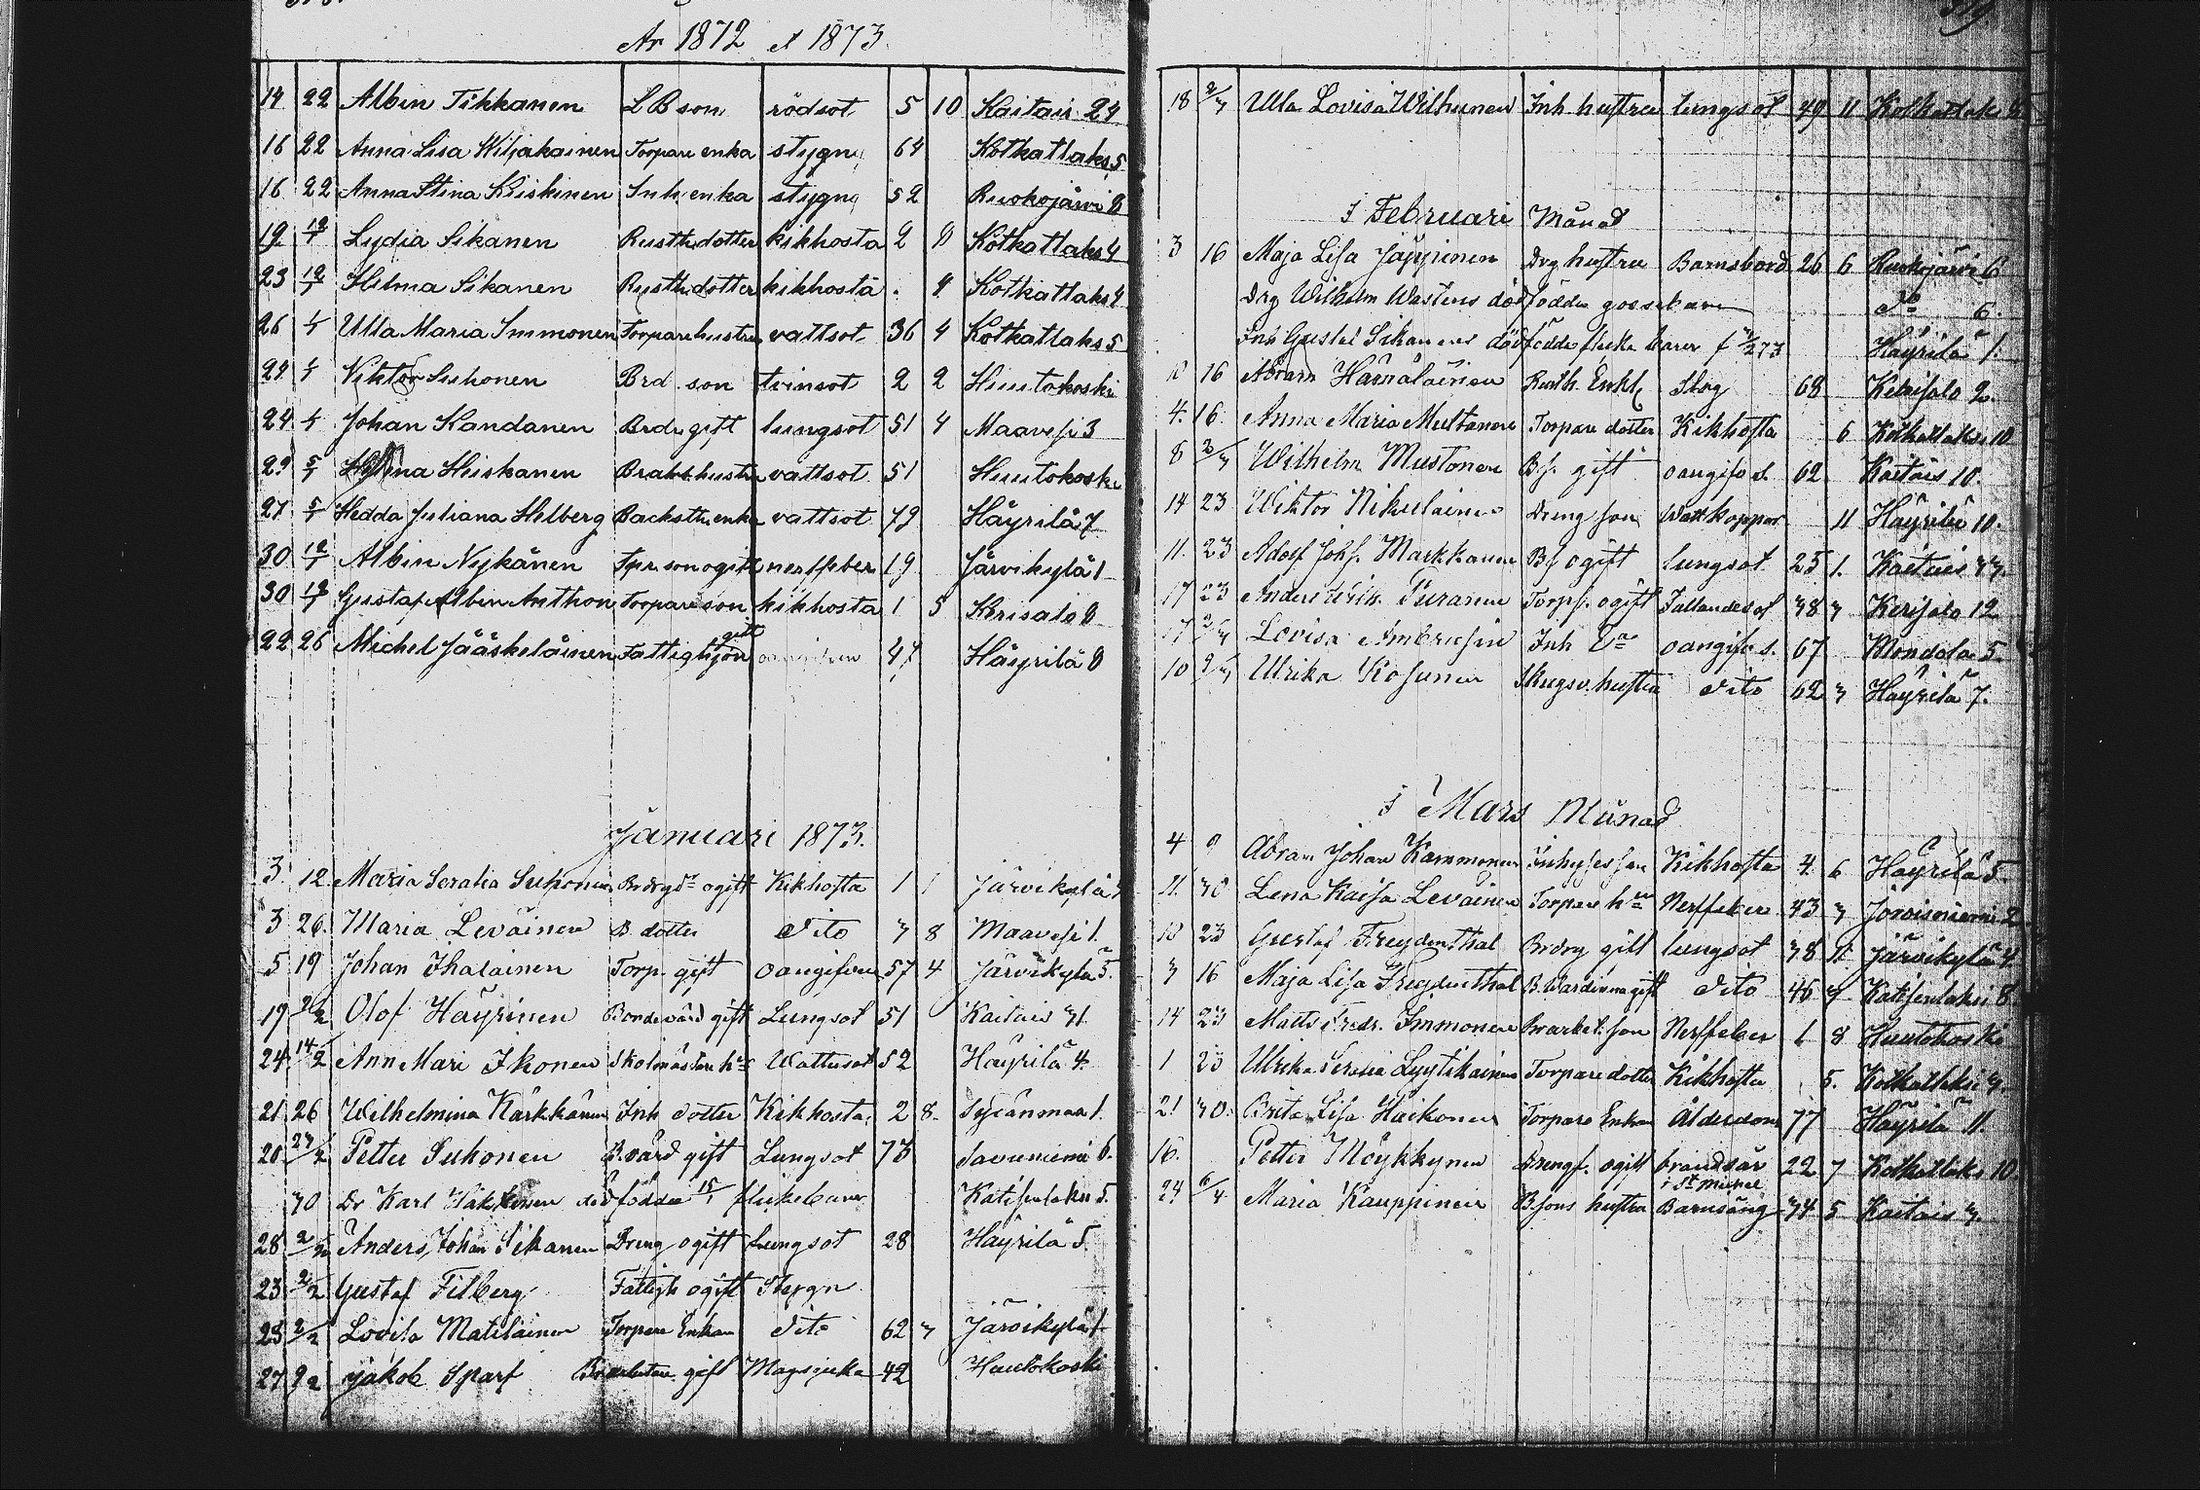 År 1872 & 1873.
14 22 Albin Tikkanen LB son rödsot 5 10 Kaitais 24
16 22 Anna Lisa Wiljakainen Torpare enka stygn 64 Kotkatlaks 5
16 22 Anna Stina Kiiskinen Inh enka stygn 52 Ruokojärvi 8
19 Lydia Sikanen Rusth dotter kikhosta 2 8 Kotkatlaks 4
23 Hilma Sikanen Rusth dotter kikhosta . 4 Kotkatlaks 4
26 Ulla Maria Immonen Torpare hustru vattsot 36 4 Kotkatlaks 5
24 Viktor Suhonen Brd son tvinsot 2 2 Huutokoski
24 Johan Kandanen gift lungsot 51 4 Maavesi 3
29 Hiiskanen hustru vattsot 51 Huutokoski
27 Hedda Juliana Hilberg Backsth enka vattsot 79 Häyrilä 7
30 Albin Nykänen Tpr son ogift nerffeber 19 Järvikylä 1
30 Gustaf Albin Anthon Torpare son kikhosta 1 5 Kerisalo 8
22 26 Michel Jääskeläinen Fattighjon gift 47 Häyrilä 8
Januari 1873.
3. 12 Maria Serafia Suhonen ogift Kikhosta 1 1 Järvikylä
3 26. Maria Leväinen B dotter Dito 3 8 Maavesi 1.
5 19 Johan Ihalainen Torp. gift oangifven 57 4 Järvikylä 5.
19 2/2 Olof Häyrinen Bondevård gift Lungsot 51 Kaitais 31
24. 14/2 Ann Mari Ikonen Skolmästare hu Wattusot 52 Häyrilä 4.
21 26 Wilhelmina Kärkkäinen Inh dotter Kikhosta 2 8. Syvänmaa 1.
20 Petter Suhonen B.vård gift Lungsot 73 Savuniemi 6.
30 Dr Karl Häkkinen död födda 15/1 flickebarn Katisenlaksi 5.
28 2/2 Anders Johan Sikanen Dreng ogift Lungsot 28 Häyrilä 5.
23 2/2 Gustaf Filberg Fattigh ogift Stygn
25 2/2 Lovisa Matilainen Torpare Enkan Dito 62 3 Järvikylä 1
27 9/2 Jakob Sparf gift Magsjuka 42 Huutokoski
18 2/3 Ulla Lovisa Wilhunen Inh hustru lungsot 49 11 Kotkatlaks
i Februari Månad
3 16 Maja Lisa Jäppinen Drg hustru Barnsbörd 26 6 Ruokojärvi 6
Drg Wilhelm Wasten dödfödda gossebarn Do 6.
Inh Gustaf Sikanen dödfödda flicke barn f 73 Häyrilä 1.
16 Abram Hämäläinen Rusth. Enkl. Slag 68 Kerisalo 2.
4. 16. Anna Maria Multanen Torpare dotter Kikhosta 6 Kotkatlaks 10
8 2/3 Wilhelm Mustonen B.s. gift oangifv s. 62 Kaitais 10.
14 23 Wiktor Nikulainen Dreng son Wattkoppor 11 Häyrilä 10.
11. 23 Adolf Johs. Markkanen Bs ogift lungsot 25 1. Kaitais 33.
17 23 Anders Erik Turanen Torps. ogift Fallandesot 38 3 Kerisalo 12
17 Lovisa Ambrusin Inh oangifv s. 67 Klondola 5.
10 9/3 Ulrika Kosunen Skogsv. hustru Dito 62 3 Häyrilä 7.
i Mars Månad
4 9 Abram Johan Kammonen Inhyses son Kikhosta 4. 6 Häyrilä 5.
11. 30 Lena Kaisa Leväinen Torpare hu Nerffeber 43 3 Joroisniemi 2
10 23 Gustaf Freydenthal gift lungsot 38 11 Järvikylä 4.
3 16 Maja Lisa Freydenthal B. Wardinna gift Dito 46 9 Katisenlaksi 8.
14 23 Matts Fredr. Immonen son Nerffeber 1 8 Huutokoski
1 23 Ulrika Serafia Lyytikäinen Torpare dotter Kikhosta 5. Kotkatlaksi 3.
21 30. Brita Lisa Haikonen Torpare Enkan Ålderdom 77 Häyrilä 11.
16. Petter Möykkynen Drengs. ogift brandsår i St Michel 22 7 Kotkatlaks 10
24 6/4 Maria Kauppinen B. sons hustru Barnsäng 34 5 Kaitais 3.